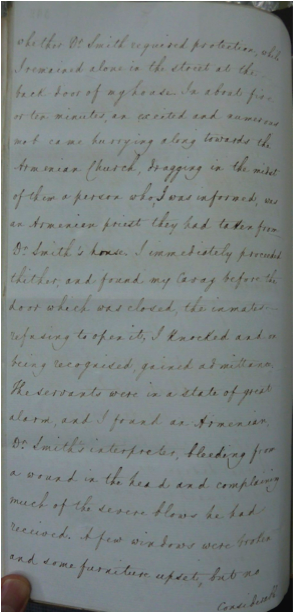 whether Dr Smith required protection, while
I remained alone in the street at the
back door of my house. In about five
or ten minutes, an excited and numerous
mob came hurrying along towards the
Armenian Church, dragging in the midst
of them a person who, I was informed, was
an Armenian priest they had taken from
Dr Smith's house. I immediately proceeded
thither, and found my Cavaş before the
door which was closed, the inmates
refusing to open it, I knocked and on
being recognised, gained admittance.
The servants were in a state of great
alarm, and I found an Armenian,
Dr Smith's interpreter, bleeding from
a wound in the head and complaining
much of the severe blows he had
received. A few windows were broken
and some furniture upset, but no
Considerable